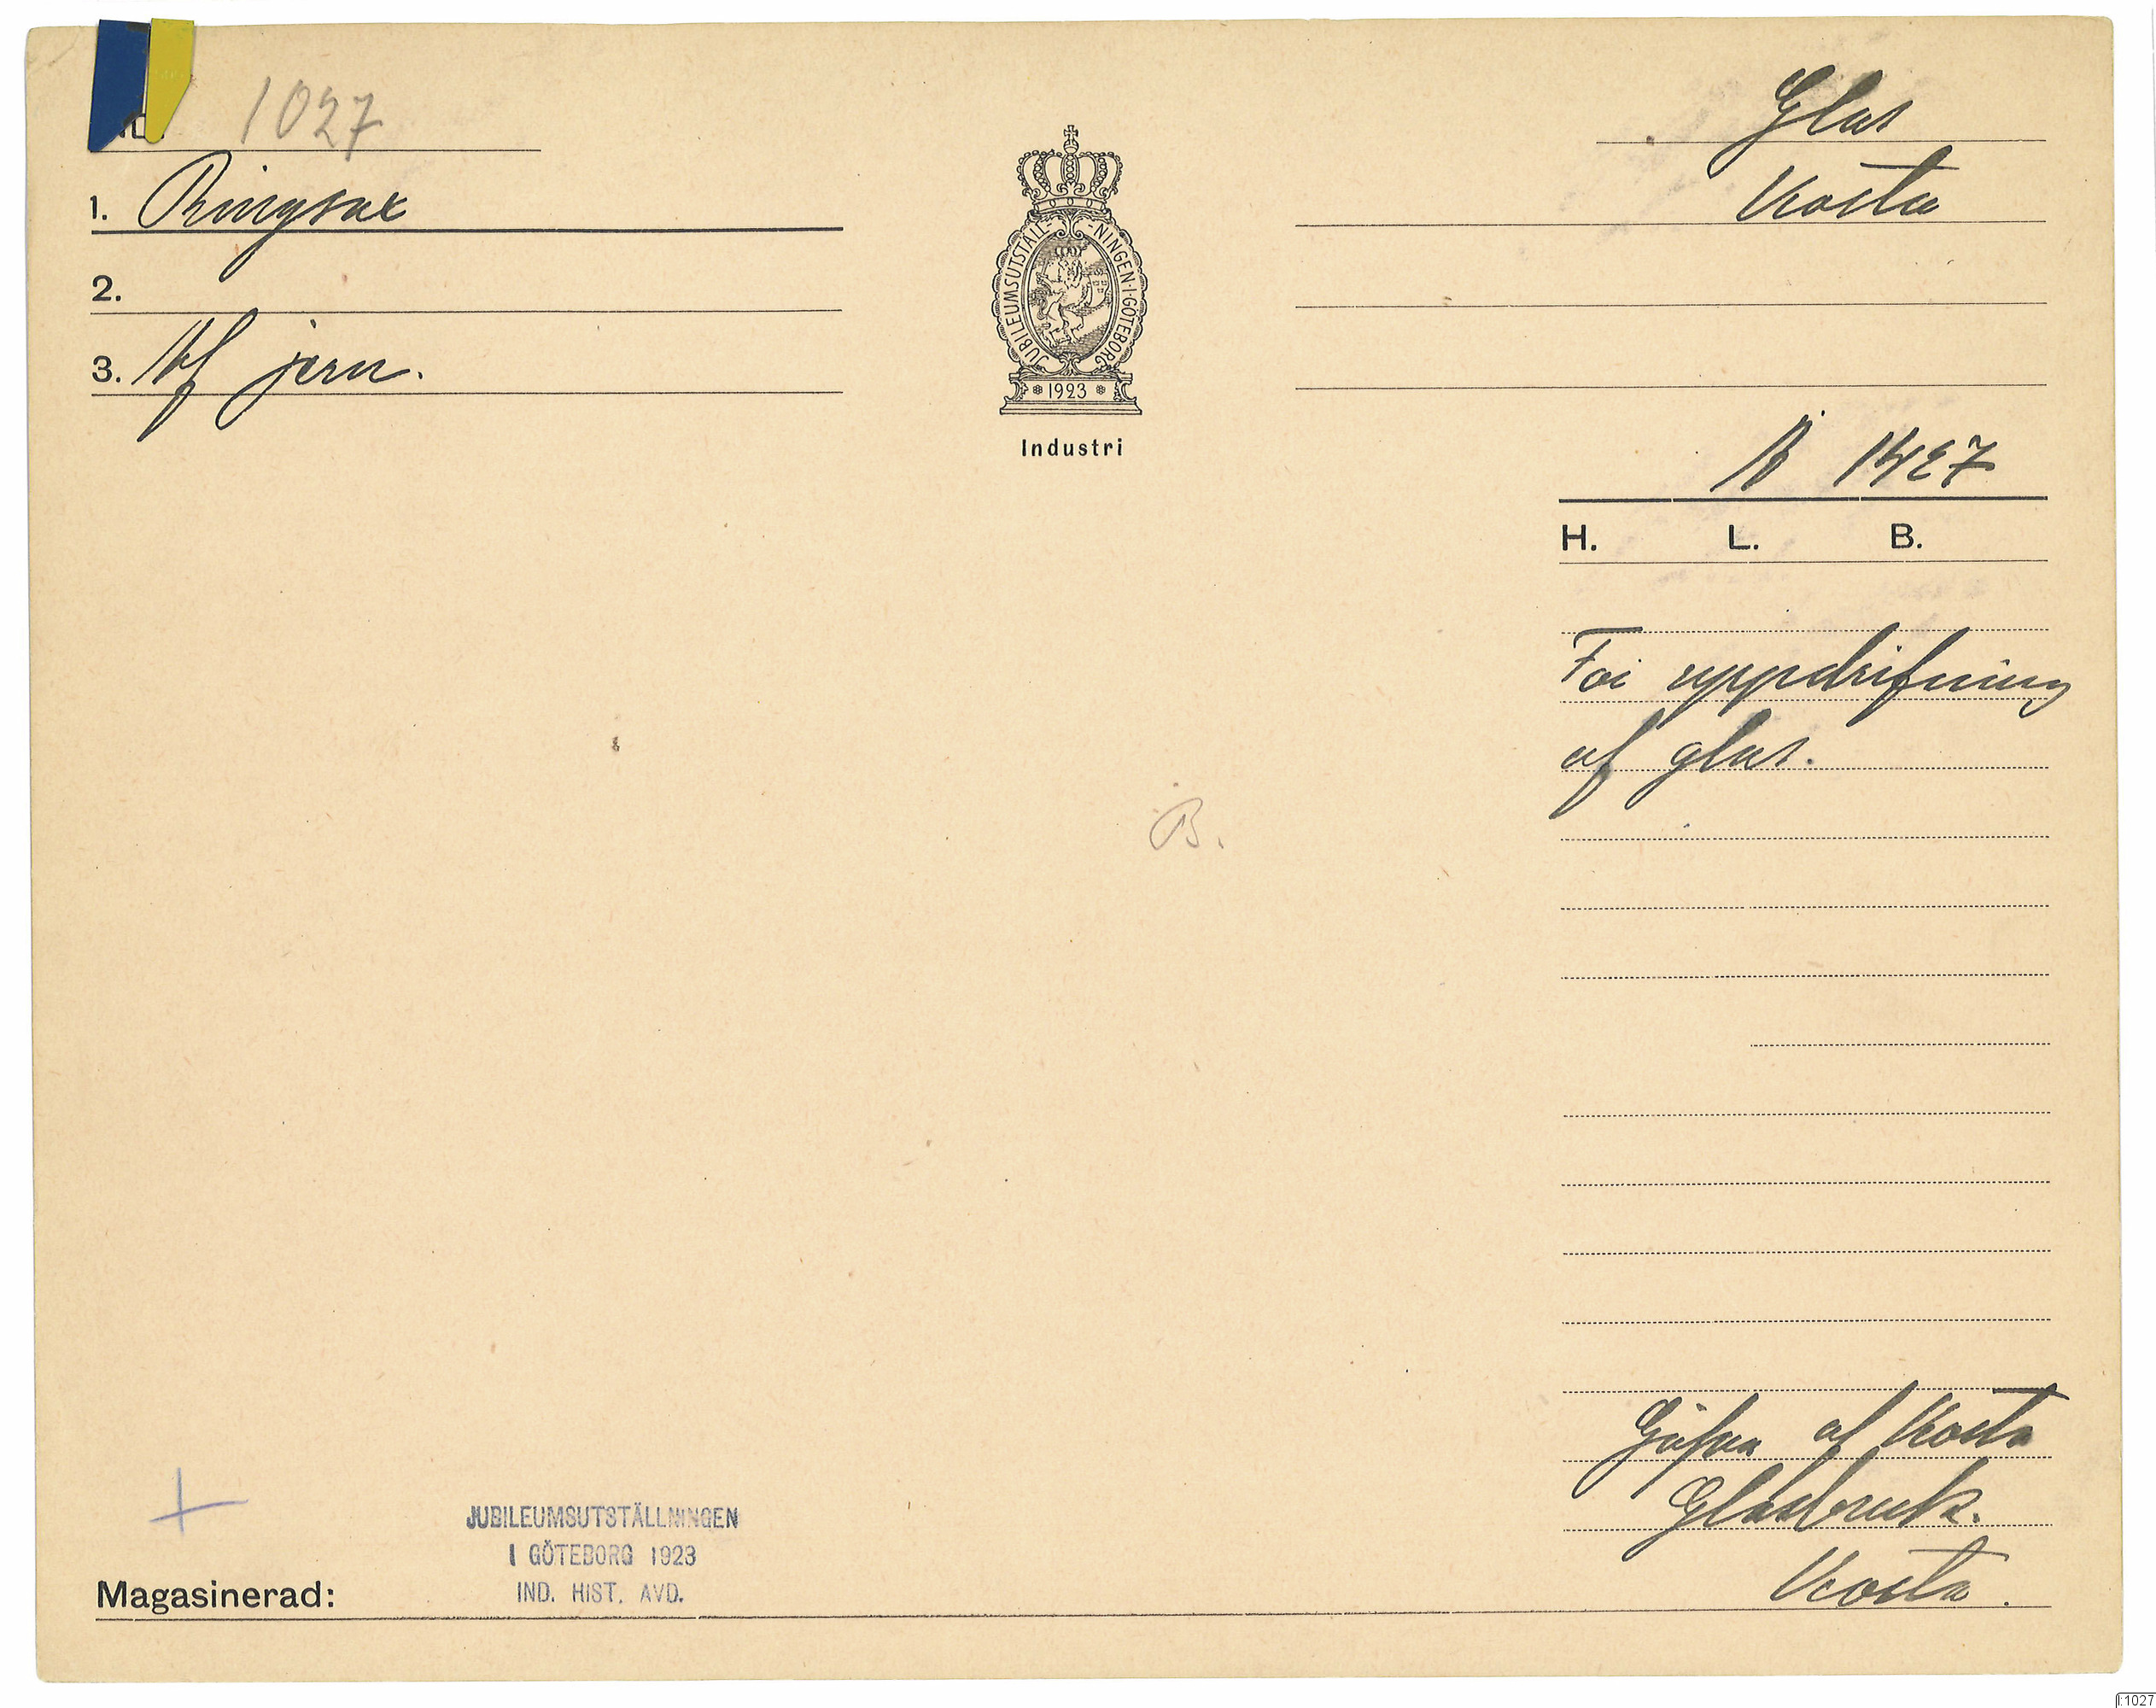 ID. 1027
Glas
1. Ringsax
Kosta
2.
3. Af jern.
JUBILEUMSUTSTÄLL-NINGEN·I·GÖTEBORG
1923
Industri
1427
H. L. B.
För uppdrifning
af glas.
B.
Gåfva af Kosta
Glasbruk.
Kosta.
JUBILEUMSUTSTÄLLNINGEN
I GÖTEBORG 1923
IND. HIST. AVD.
Magasinerad:
I:1027